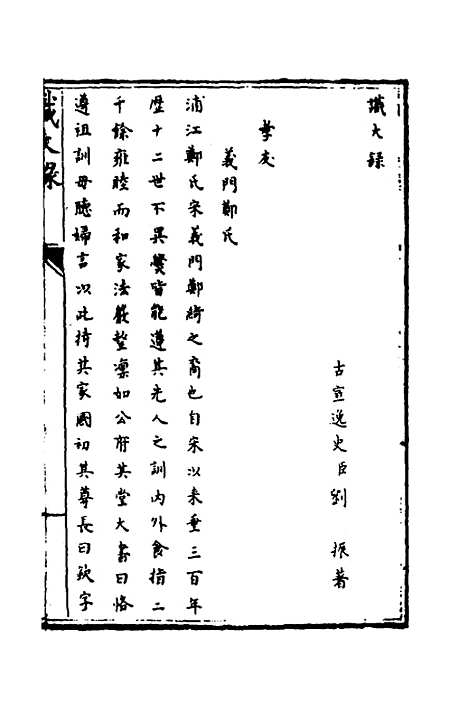 識大錄
古宣逸史臣劉 振著
孝友
義門鄭氏
浦江鄭氏宋義門鄭綺之裔也自宋以來垂三百年
歷十二世不異爨皆能遵其先人之訓內外食指二
千餘雍睦而和家法嚴整凜如公府其堂大書曰恪
遵祖訓毋聽婦言以此持其家國初其尊長曰欽字
識大錄